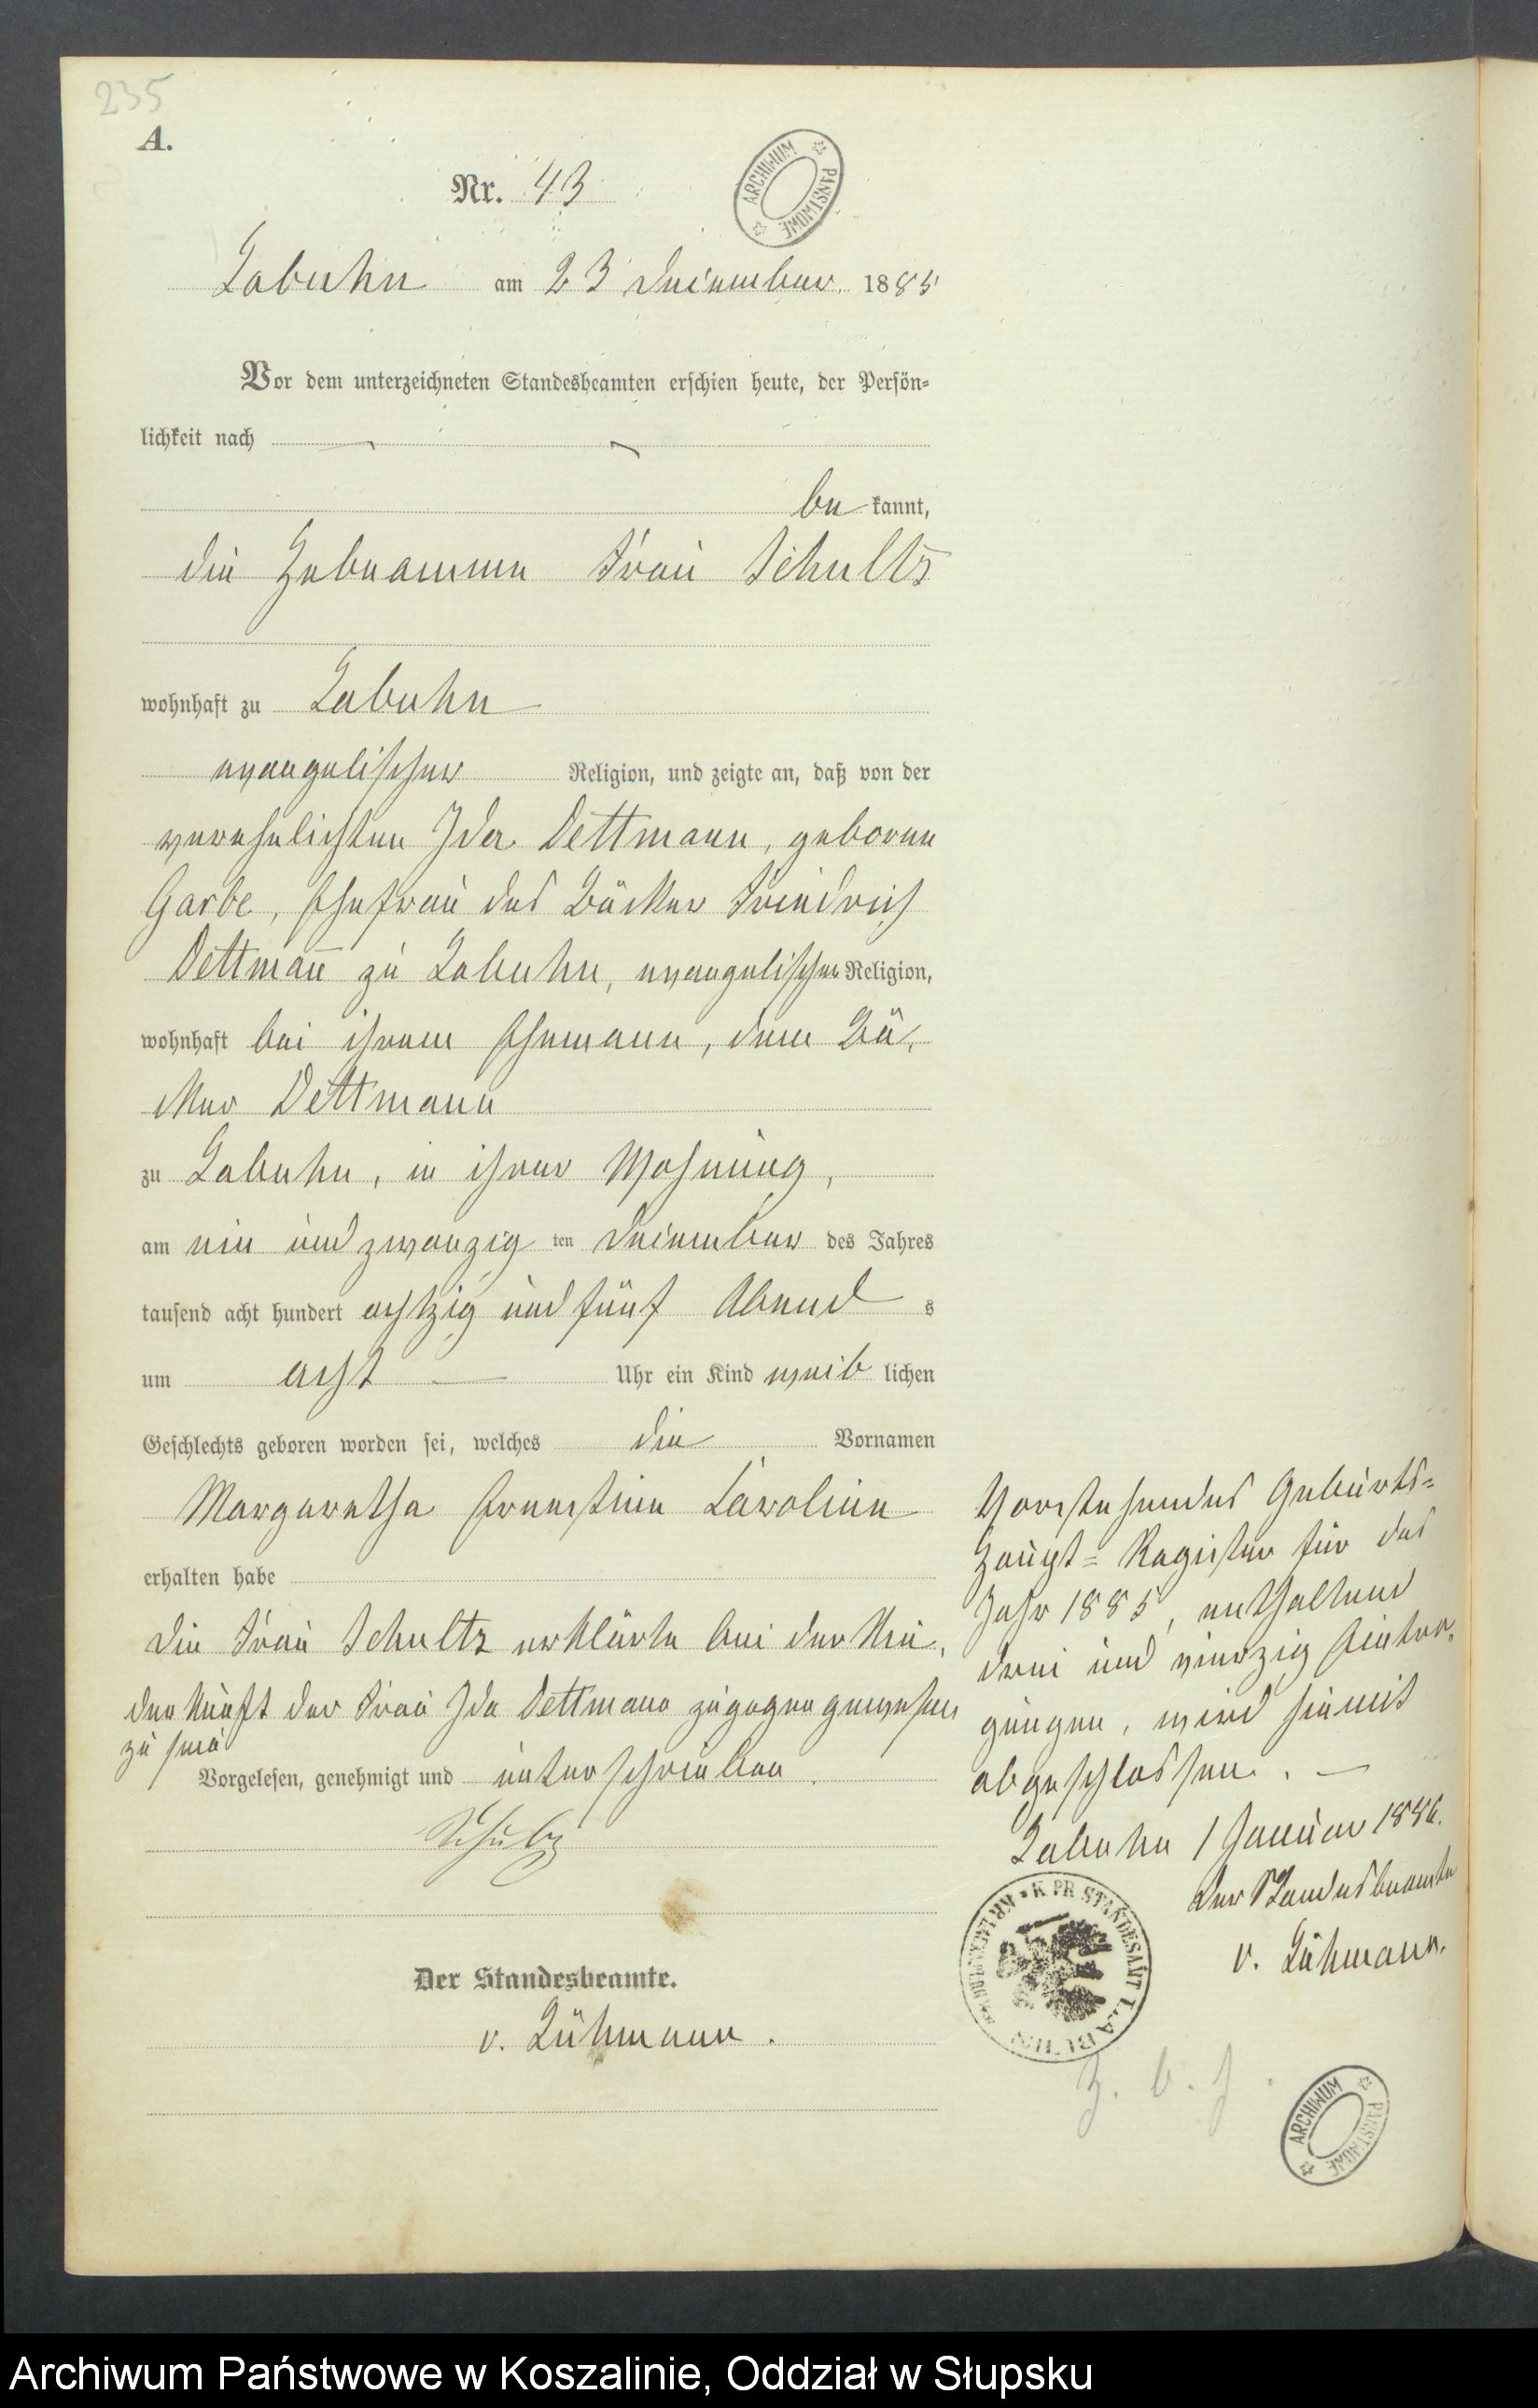 235
A.
Nr. 43
ARCHIWUM PAŃSTWOWE
Labuhn am 23 December 1885
Vor dem unterzeichneten Standesbeamten erschien heute, der Persön=
lichkeit nach
be kannt,
die Hebeamme Frau Schultz
wohnhaft zu Labuhn
evangelischer Religion, und zeigte an, daß von der
verehelichten Ida Dettmann, geborene
Garbe, Ehefrau des Bäcker Friedrich
Dettmañ zu Labuhn, evangelischer Religion,
wohnhaft bei ihrem Ehemann, dem Bä-
cker Dettmann
zu Labuhn, in ihrer Wohnung,
am ein und zwanzig ten December des Jahres
tausend acht hundert achtzig und fünf Abend s
um acht Uhr ein Kind weib lichen
Geschlechts geboren worden sei, welches die Vornamen
Margaretha Ernestine Caroline
erhalten habe
Die Frau Schultz erklärte bei der Nie-
derkunft der Frau Ida Dettmann zugegen gewesen
zu sein
Vorgelesen, genehmigt und unterschrieben.
Schulz
Der Standesbeamte.
v. Lühmann.
Vorstehendes Geburts=
Haupt=Register für das
Jahr 1885, enthaltend
drei und vierzig Eintra-
gungen, wird hiemit
abgeschlossen. —
Labuhn 1 Januar 1886.
Der Standesbeamte
v. Lühmann.
K. PR. STANDESAMT LABUHN
ARCHIWUM PAŃSTWOWE
Archiwum Państwowe w Koszalinie, Oddział w Słupsku